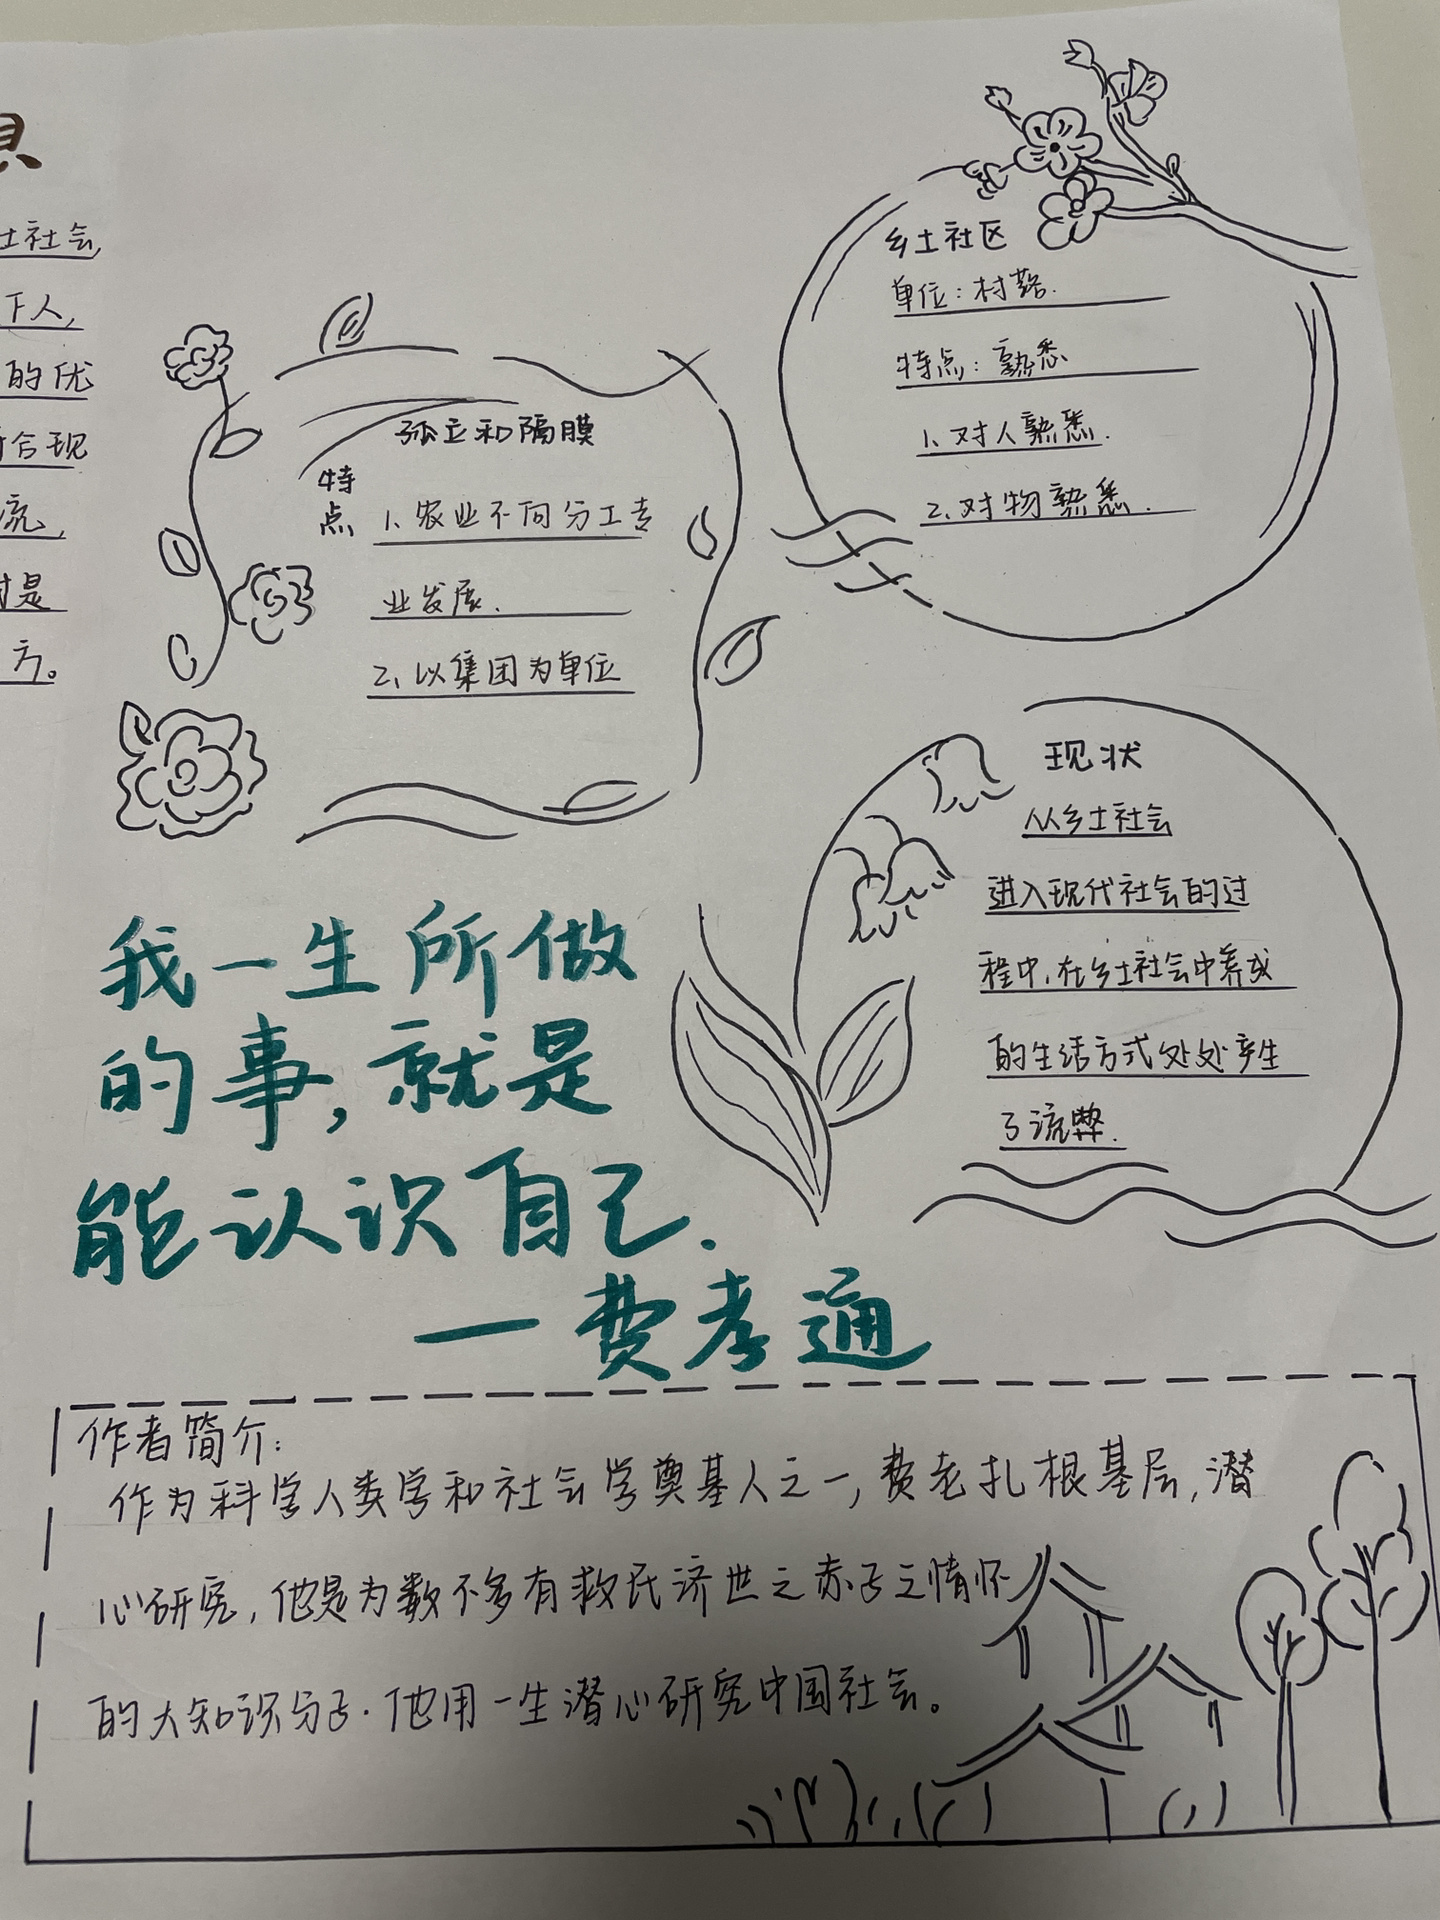 息
土社会,
下人,
的优
合现
流,
是
方。
乡土社区
单位:村落.
特点:熟悉
1.对人熟悉.
2.对物熟悉.
孤立和隔膜
特点
1.农业不向分工专
业发展.
2.以集团为单位
现状
从乡土社会
进入现代社会的过
程中,在乡土社会中养成
的生活方式处处产生
了流弊.
我一生所做
的事,就是
能认识自己.
—费孝通
作者简介:
作为科学人类学和社会学奠基人之一,费老扎根基层,潜
心研究,他是为数不多有救民济世之赤子之情怀
的大知识分子.他用一生潜心研究中国社会。